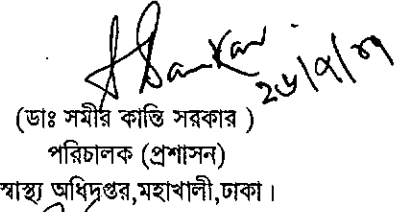 (ডাঃ সমীর কান্তি সরকার )
পরিচালক (প্রশাসন)
স্বাস্থ্য অধিদপ্তর,মহাখালী,ঢাকা।